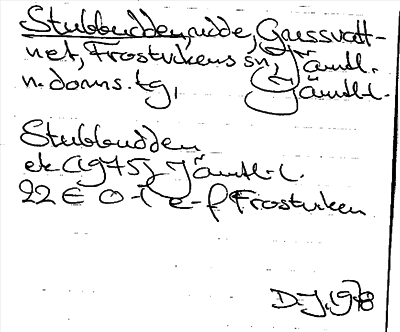 Stubbudden, udde, Gussvatt-
net, Frostvikens sn, Jämtl.
n. doms. tg, Jämtl-l.
Stubbudden
ek (1975) Jämtl-l.
22 E 0-1 e-f Frostviken
D.J. 1978